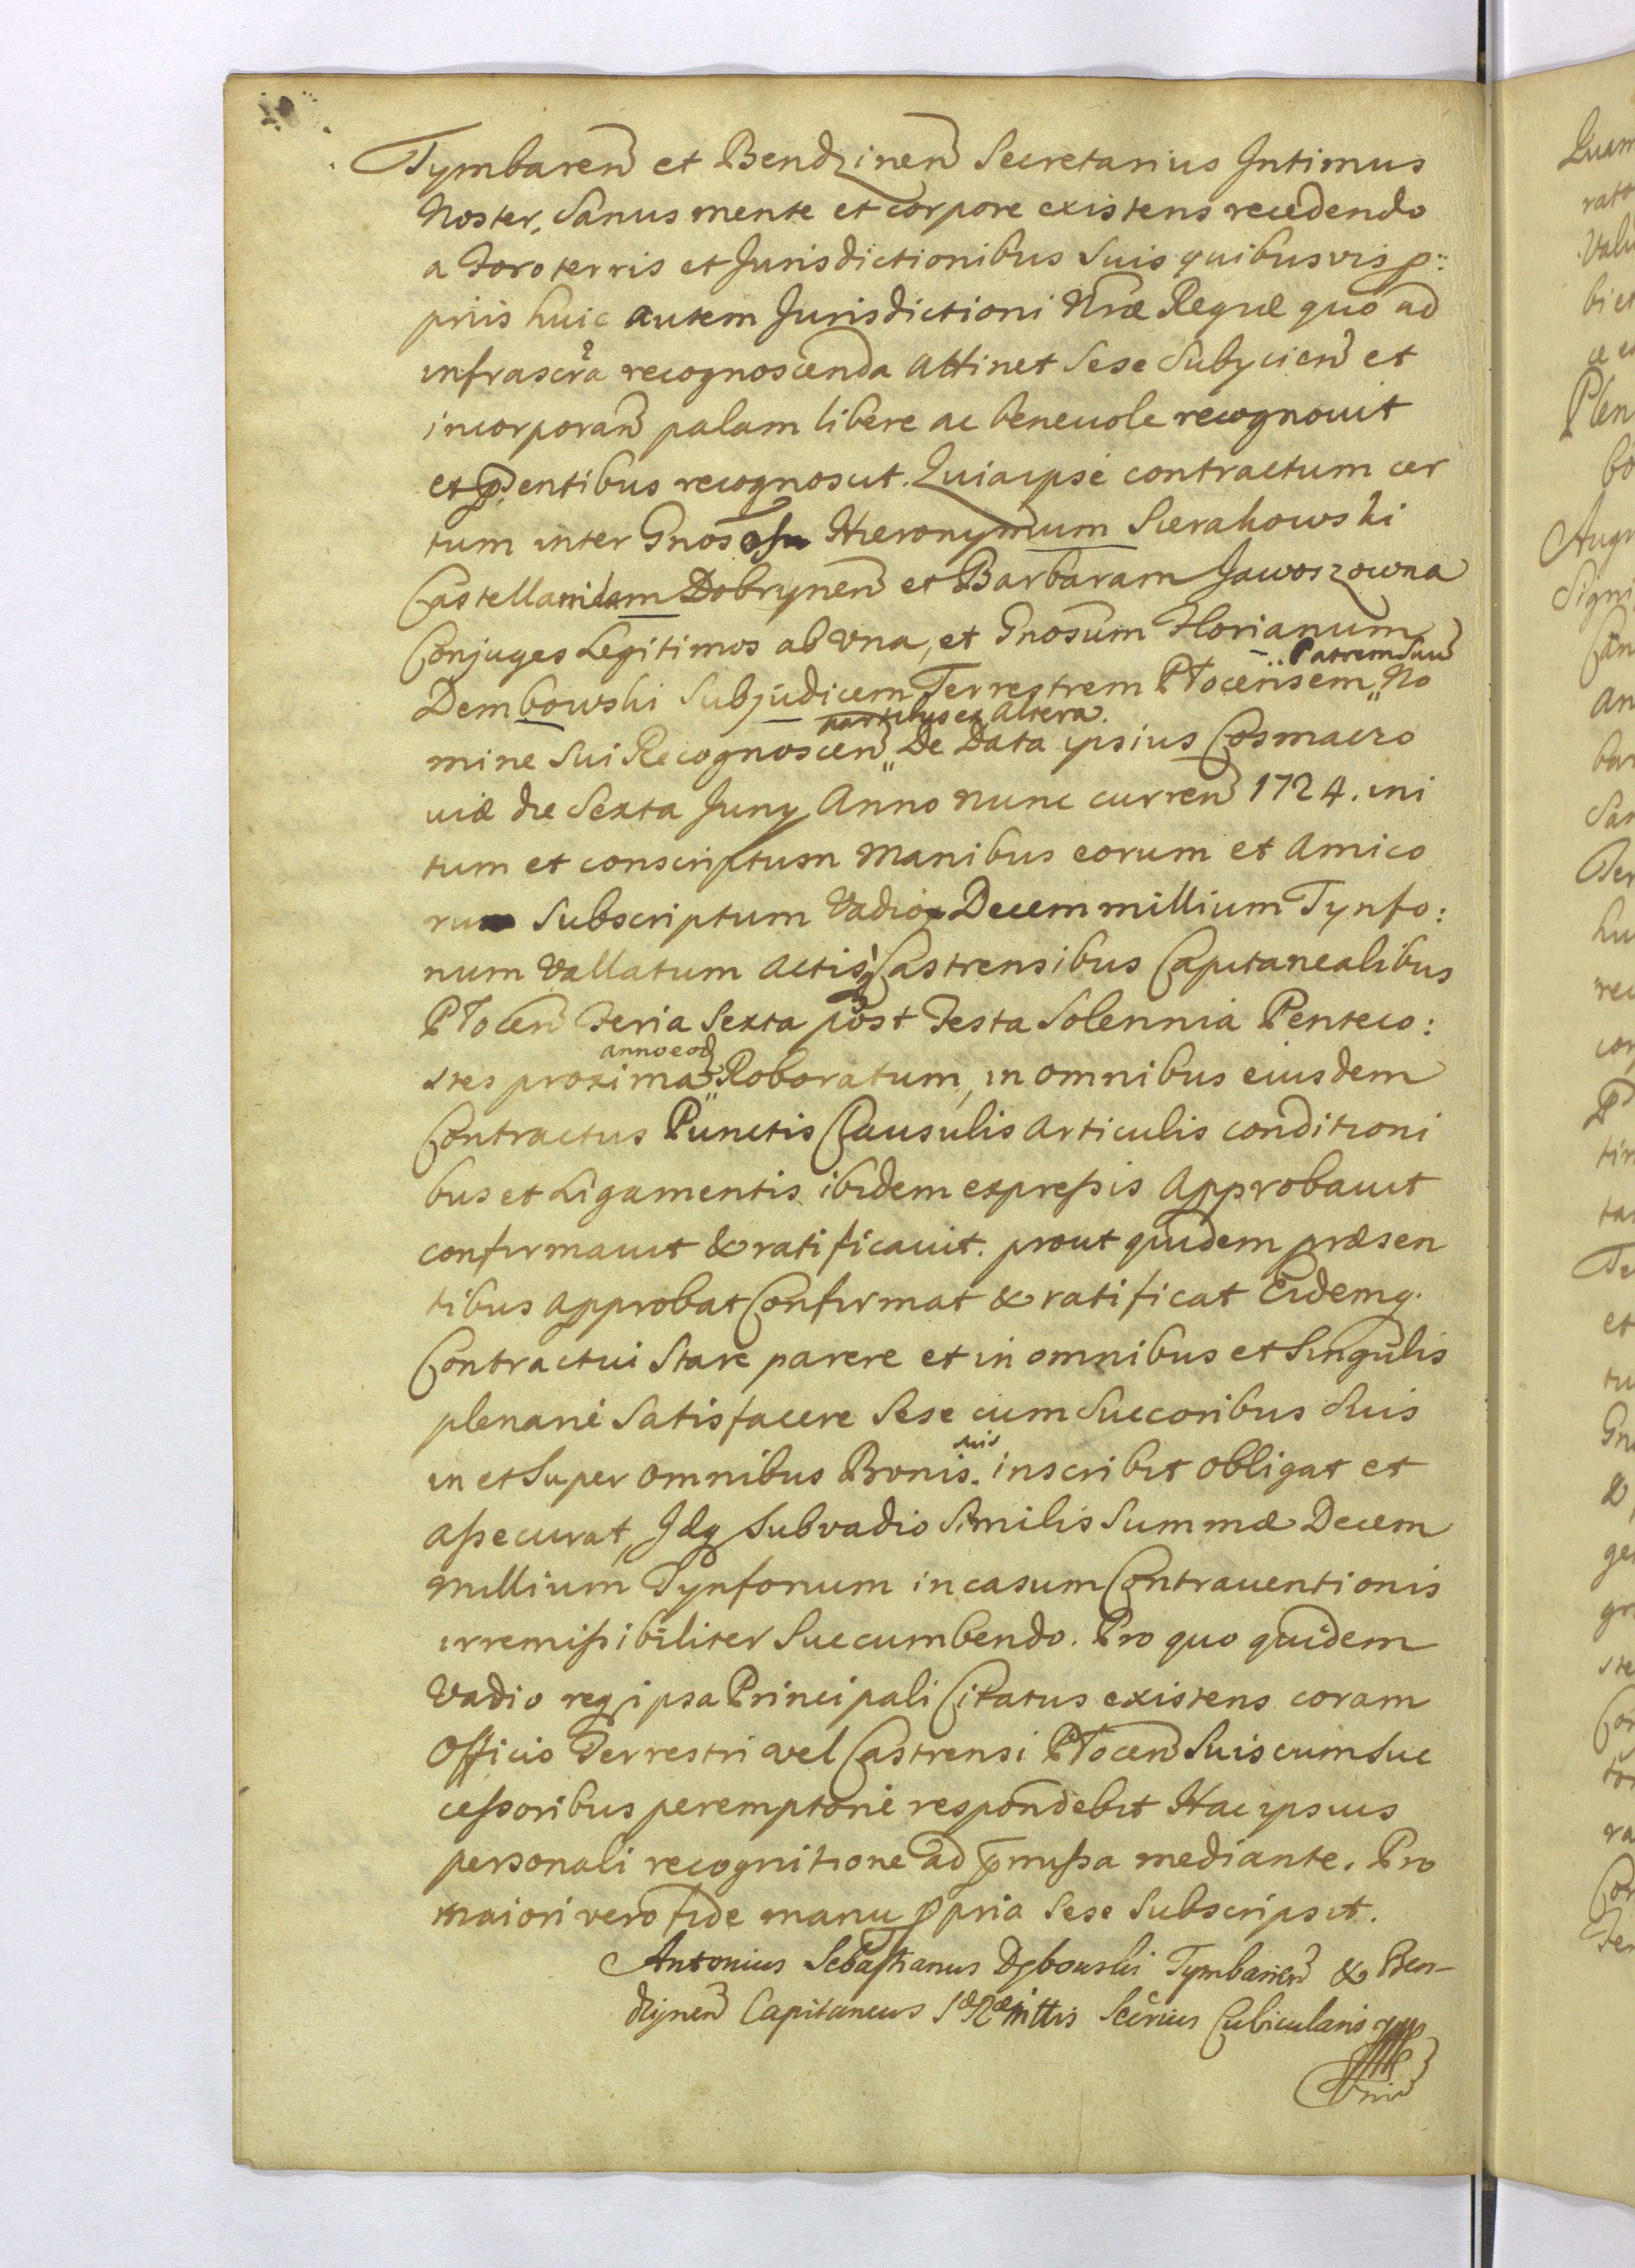 Tymbaren et Bendzinen Secretarius Intimus
Noster, Sanus mente et corpore existens recedendo
a Foro terris et Jurisdictionibus Suis quibusvis p:
priis huic autem Jurisdictioni Nræ Regiæ quo ad
infrascra recognoscenda attinet Sese Subycien et
incorporan palam libere ac beneuole recognouit
et pntibus recognoscit. Quia ipse contractum cer
tum inter Gnosos Hieronymum Sierakowski
Castellanidam Dobrynen et Barbaram Jawoszowna
Conjuges Legitimos ab vna, et Gnosum Florianum
Patrem Suu
Dembowski Subjudicem Terrestrem Plocensem,, No
partibus ex altera.
mine Sui Recognoscen,, De Data ipsius Cosmacro
uiæ die Sexta Juny Anno nunc curren 1724. ini
tum et conscriptum manibus eorum et Amico
rum Subscriptum Vadioq Decem millium Tynfo:
num vallatum actisq Castrensibus Capitanealibus
Plocen Feria Sexta post Festa Solennia Penteco:
anno eod
stes proxima,, Roboratum, in omnibus eiusdem
Contractus Punctis Clausulis articulis conditioni
bus et Ligamentis ibidem expressis Approbauit
confirmauit & ratificauit. prout quidem præsen
tibus approbat Confirmat & ratificat Eidemq.
Contractui Stare parere et in omnibus et Singulis
plenarie Satisfacere Sese cum Succoribus Suis
suis
in et Super omnibus Bonis. inscribit obligat et
assecurat, Idq Sub vadio Similis Summæ Decem
Millium Tynfonum in casum Contrauentionis
irremissibiliter Succumbendo. Pro quo quidem
Vadio req ipsa Principali Citatus existens coram
Officio Terrestri vel Castrensi Plocen Suis cum Suc
cessoribus peremptorie respondebit Hac ipsius
personali recognitione ad pmissa mediante. Pro
maiori vero fide manu ppria Sese Subscripsit.
Antonius Sebastianus Dębowski Tymbarien & Ben-
dzynen Capitaneus Secrius Cubicularis